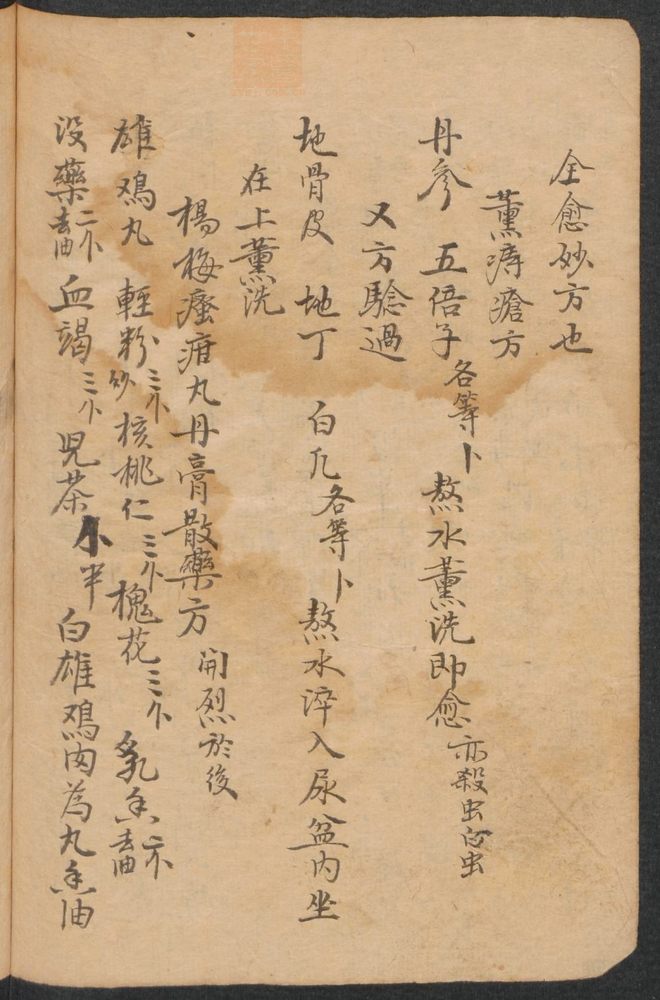 全愈妙方也
薰痔瘡方
丹參 五倍子各等卜 熬水薰洗即愈亦殺虫
又方驗過
地骨皮 地丁 白凡各等卜 熬水淬入尿盆內坐
在上薰洗
楊梅瘡疳丸丹膏散藥方 開烈於後
雄鳮丸 輕粉三卜 核桃仁三卜 槐花三卜 乳香二卜去油
沒藥二卜去油 血竭三卜 児茶卜半 白雄鳮肉為丸香油